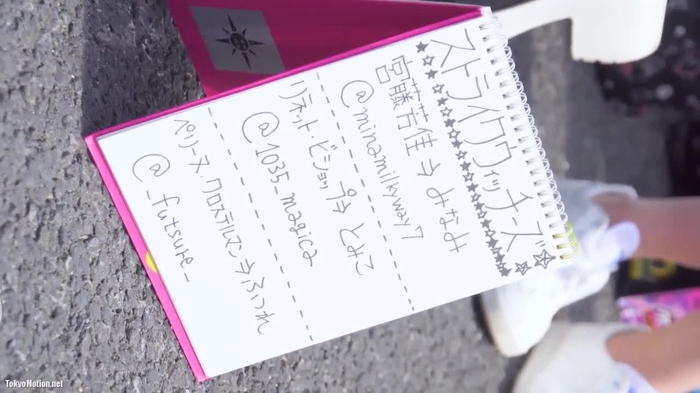 ストライクウィッチーズ
宮藤芳佳⇒みなみ
@minamilkyway7
リネット・ビショップ⇒とみこ
@1035_magica
ペリーヌ・クロステルマン⇒ふつれ
@_futsure_
TokyoMotion.net